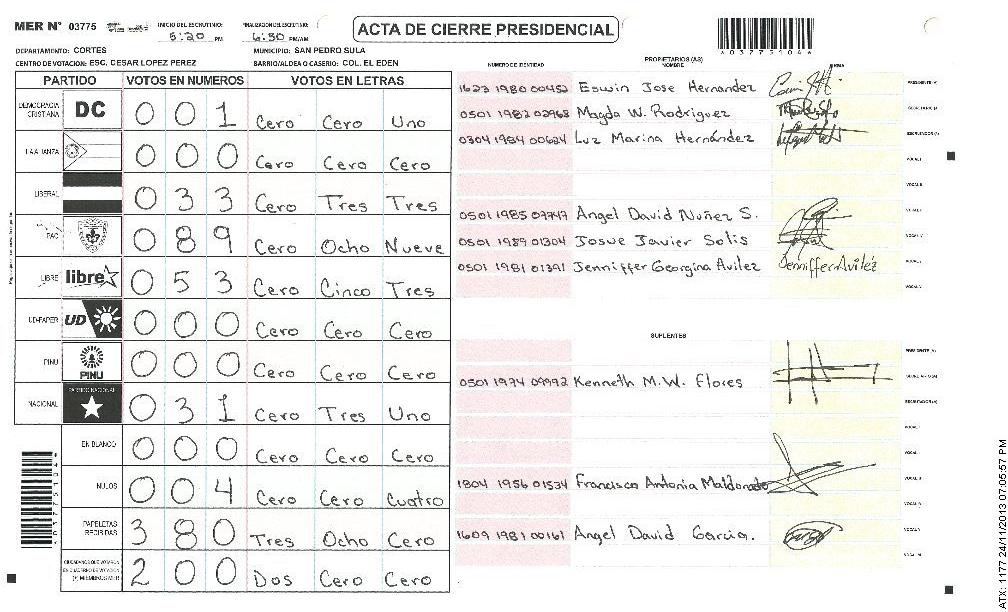 MER N° 03775
INICIO DEL ESCRUTINIO: 5:20 PM
FINALIZACION DEL ESCRUTINIO: 6:30 PM/AM
ACTA DE CIERRE PRESIDENCIAL
DEPARTAMENTO: CORTES
MUNICIPIO: SAN PEDRO SULA
CENTRO DE VOTACION: ESC. CESAR LOPEZ PEREZ
BARRIO/ALDEA O CASERIO: COL. EL EDEN
PARTIDO VOTOS EN NUMEROS VOTOS EN LETRAS
DEMOCRACIA CRISTIANA DC 0 0 1 Cero Cero Uno
0 0 0 Cero Cero Cero
LIBERAL 0 3 3 Cero Tres Tres
PAC 0 8 9 Cero Ocho Nueve
LIBRE libre 0 5 3 Cero Cinco Tres
UD-FAPER UD 0 0 0 Cero Cero Cero
PINU PINU 0 0 0 Cero Cero Cero
NACIONAL PARTIDO NACIONAL 0 3 1 Cero Tres Uno
EN BLANCO 0 0 0 Cero Cero Cero
NULOS 0 0 4 Cero Cero Cuatro
PAPELETAS RECIBIDAS 3 8 0 Tres Ocho Cero
CIUDADANOS QUE VOTARON EN CUADERNO DE VOTACION (+) MIEMBROS MER 2 0 0 Dos Cero Cero
PROPIETARIOS (AS)
NUMERO DE IDENTIDAD NOMBRE FIRMA
1623 1980 00452 Eswin Jose Hernandez PRESIDENTE (A)
0501 1982 02963 Magda W. Rodriguez SECRETARIO (A)
0304 1984 00624 Luz Marina Hernández ESCRUTADOR (A)
VOCAL I
VOCAL II
0501 1985 07747 Angel David Nuñez S.
0501 1989 01304 Josue Javier Solis
0501 1981 01391 Jenniffer Georgina Avilez Jenniffer Aviléz
SUPLENTES
PRESIDENTE (A)
0501 1974 09992 Kenneth M.W. Flores SECRETARIO (A)
ESCRUTADOR (A)
VOCAL I
1804 1956 01534 Francisco Antonia Maldonado
1609 1981 00161 Angel David Garcia.
ATX: 1177 24/11/2013 07:05:57 PM